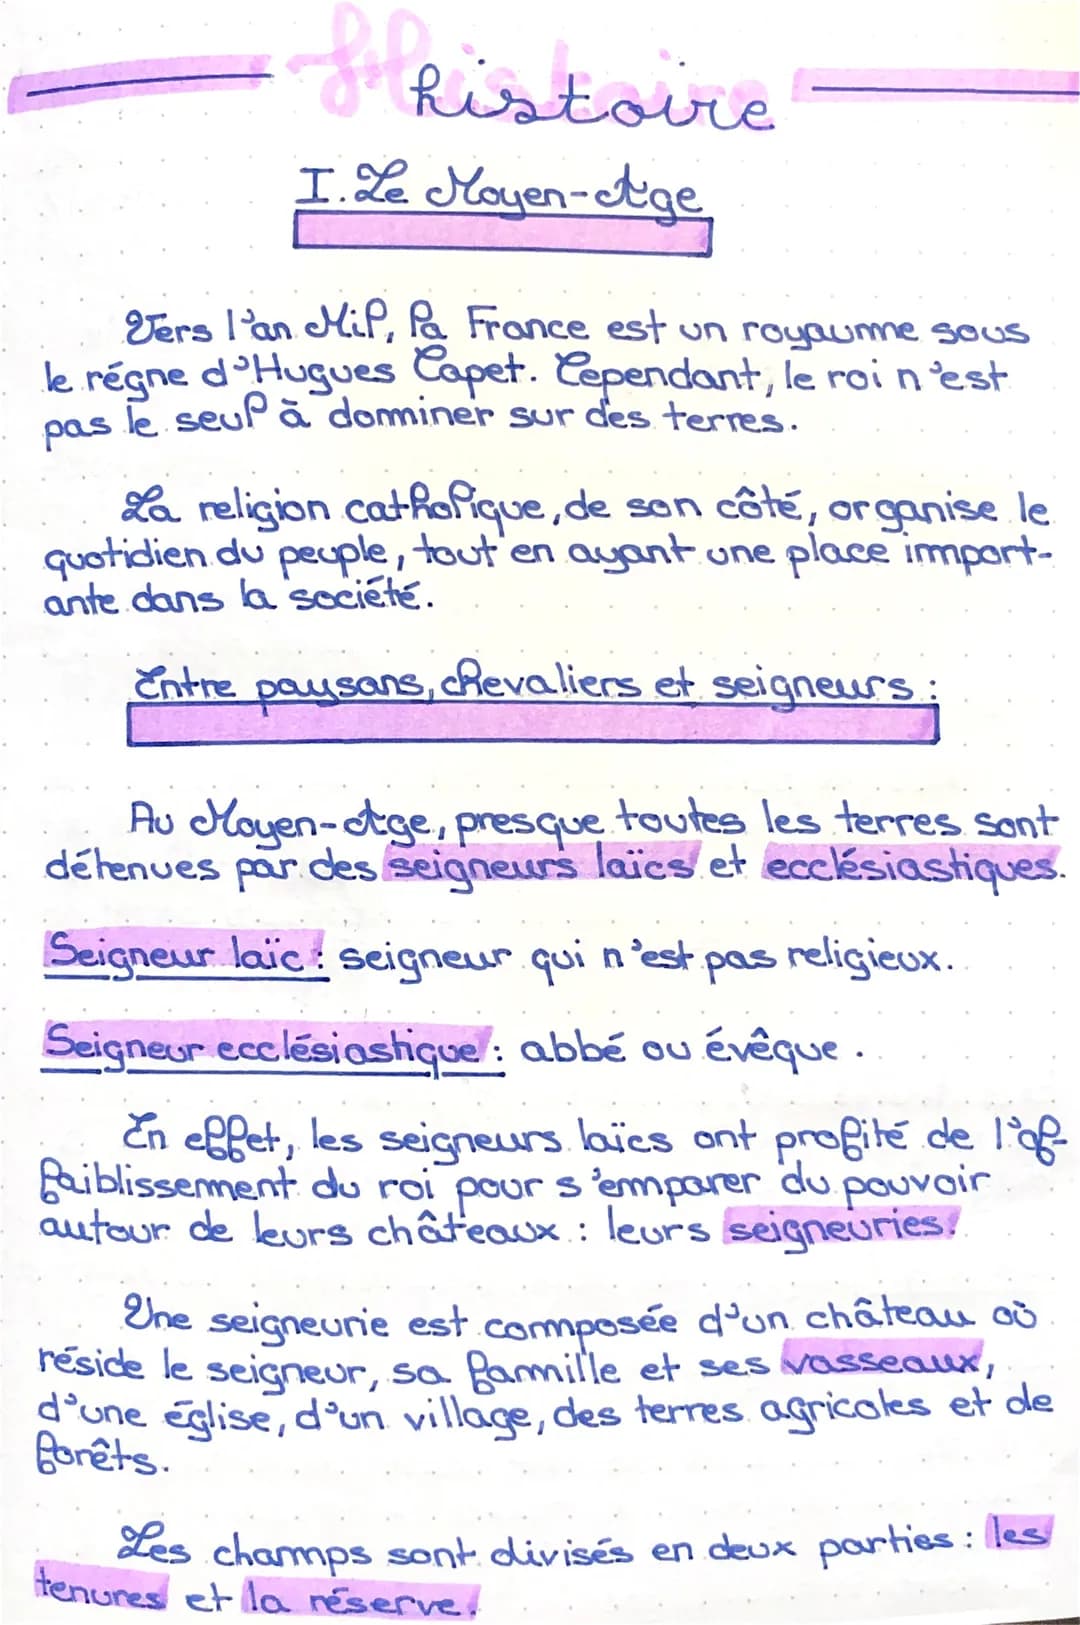 histoire
I. Le Moyen-Age
Vers l'an Mil, la France est un royaume sous
le régne d'Hugues Capet. Cependant, le roi n'est
pas le seul à dominer sur des terres.
La religion catholique, de son côté, organise le
quotidien du peuple, tout en ayant une place import-
ante dans la société.
Entre paysans, chevaliers et seigneurs :
Au Moyen-Age, presque toutes les terres sont
détenues par des seigneurs laïcs et ecclésiastiques.
Seigneur laïc : seigneur qui n'est pas religieux.
Seigneur ecclésiastique : abbé ou évêque.
En effet, les seigneurs laïcs ont profité de l'af-
faiblissement du roi pour s'emparer du pouvoir
autour de leurs châteaux : leurs seigneuries.
Une seigneurie est composée d'un château où
réside le seigneur, sa famille et ses vasseaux,
d'une église, d'un village, des terres agricoles et de
forêts.
Les champs sont divisés en deux parties : les
tenures et la réserve.